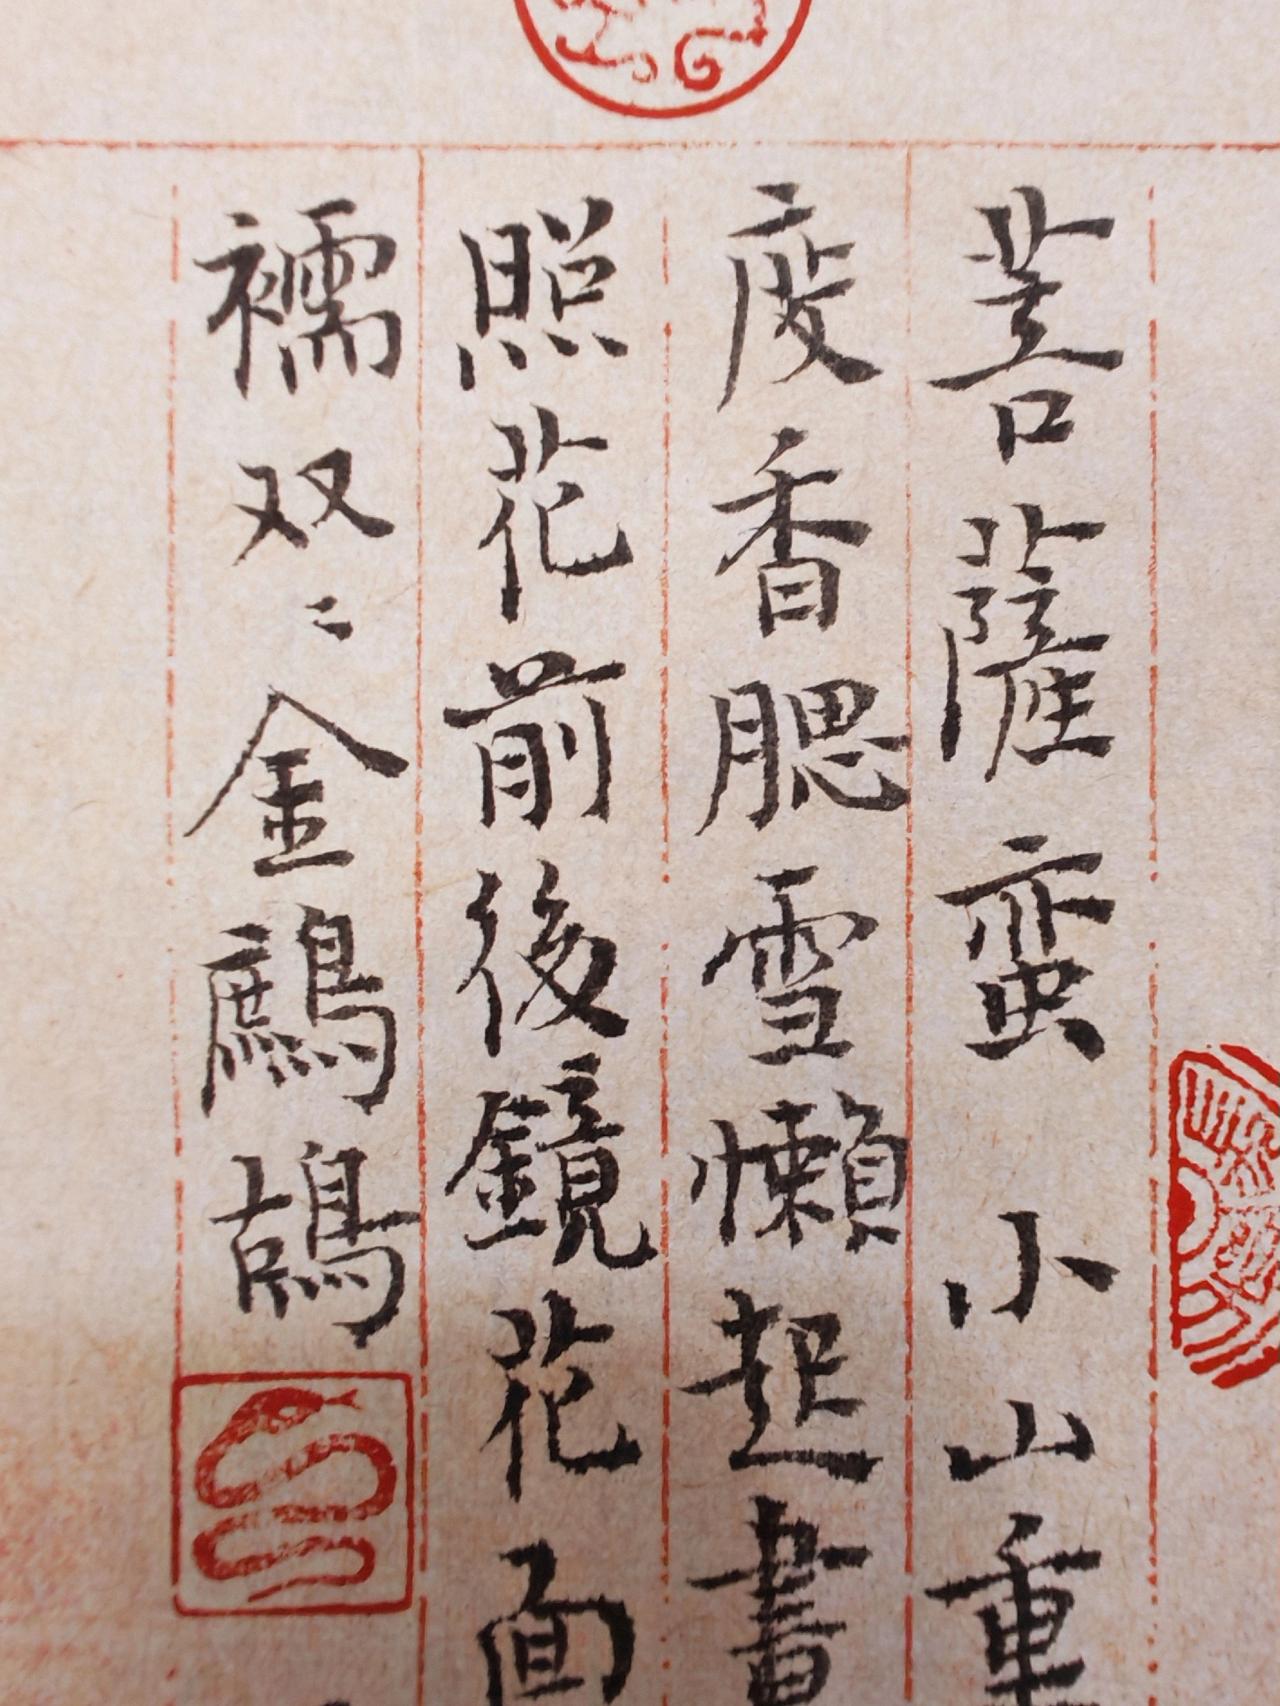 菩薩蛮 小山重
度香腮雪懶起畫
照花前後鏡花面
襦双〻金鷓鴣